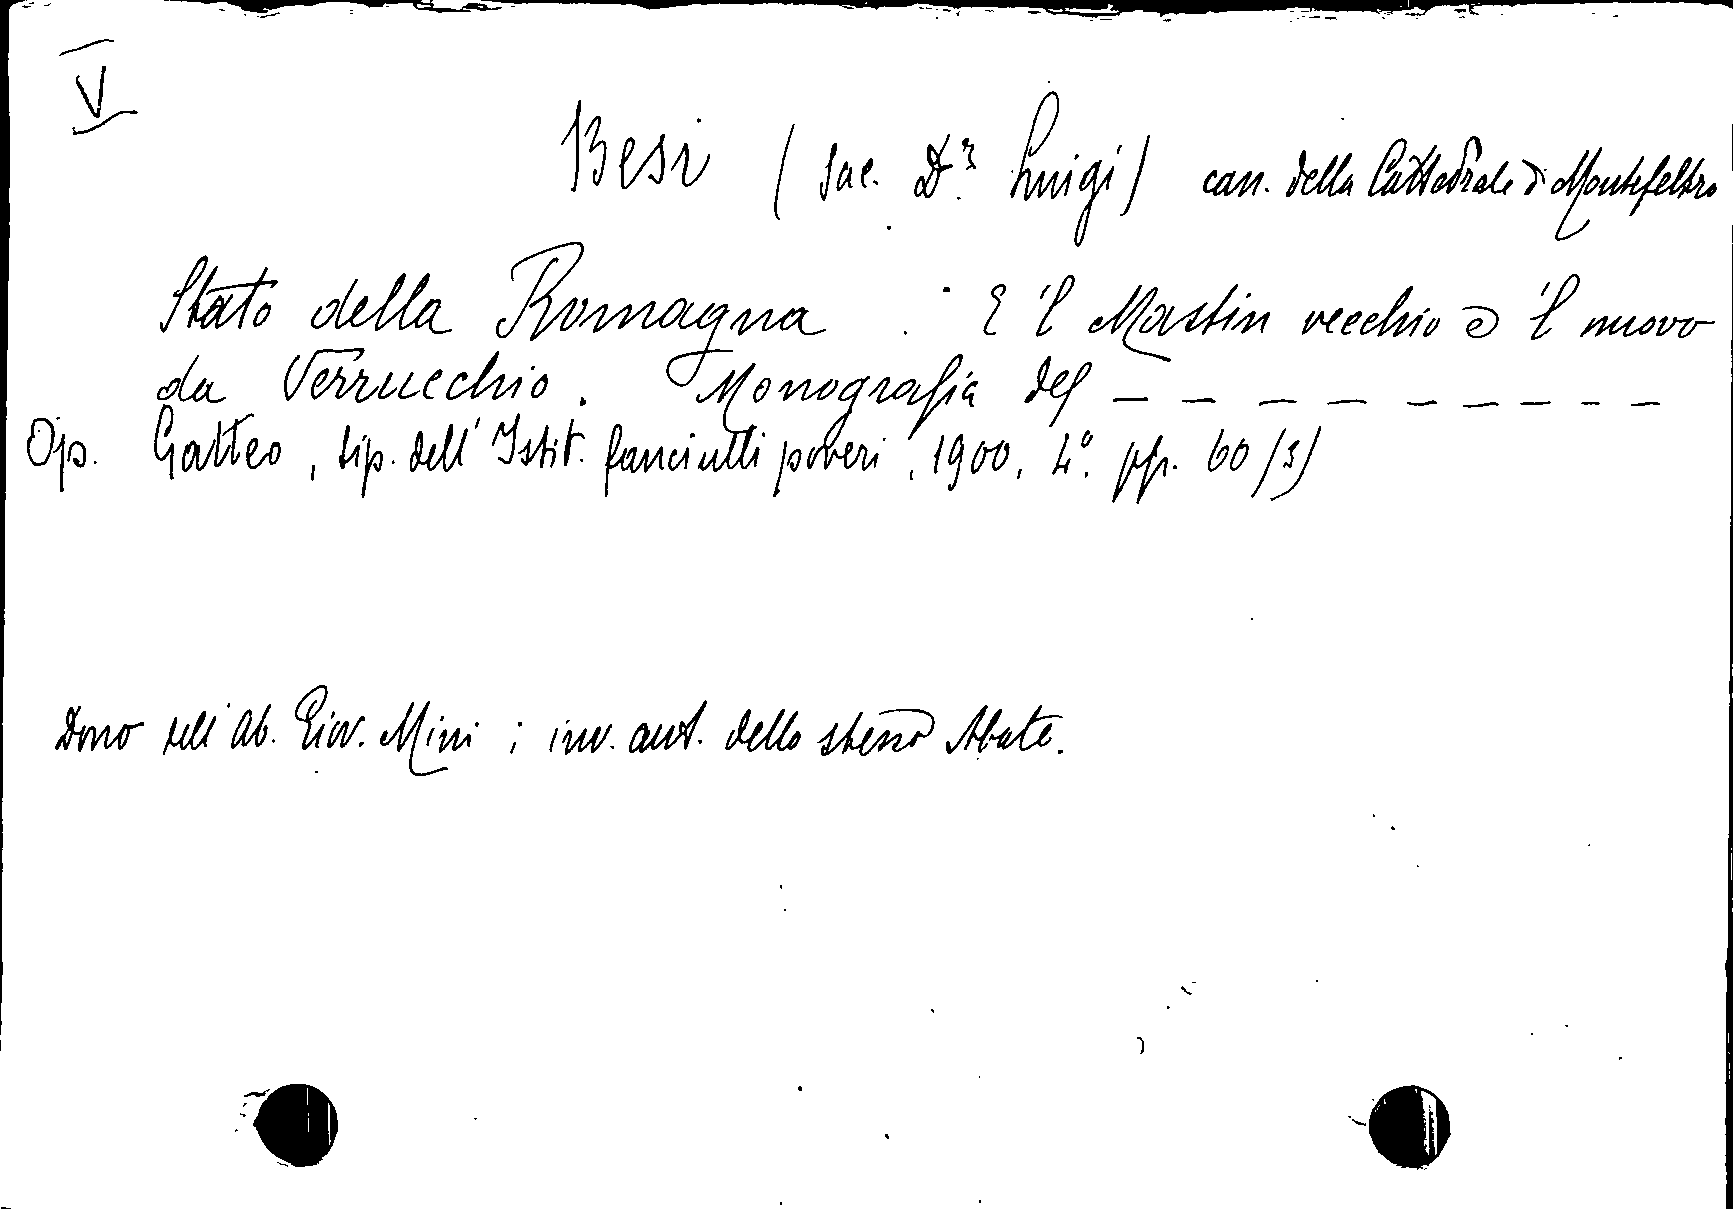 V
Besi (Sac. D.r Luigi) can. della Cattedrale di Montefeltro
Stato della Romagna. E 'l Mastin vecchio e 'l nuovo
da Verrucchio. Monografia del — — — — — — — — — —
Op. Gatteo, tip. dell'Istit. fanciulli poveri, 1900, 4°. pp. 60 (3)
Dono dell'Ab. Giov. Mini; inv. aut. dello stesso Abate.